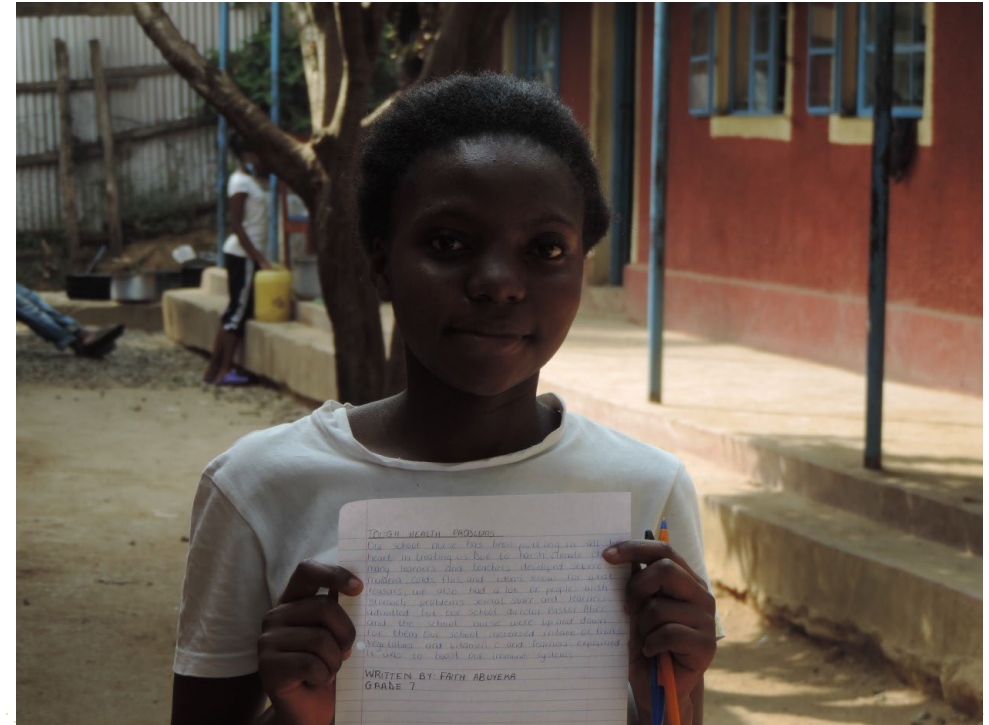 TOUGH HEALTH PROBLEMS
Our school nurse has been putting in all
heart in treating us. Due to harsh climate
many learners and teachers developed severe
colds, flus and for what
reasons, we also had a lot of people with
stomach problems. several staff and learners
our school director Pastor Alice
and the school nurse were up and down
for them. Our school increased intake of fruits
vegetables and vitamin c and learners explained
is was to boost our immune systems.
WRITTEN BY: FAITH ABUYEKA
GRADE 7